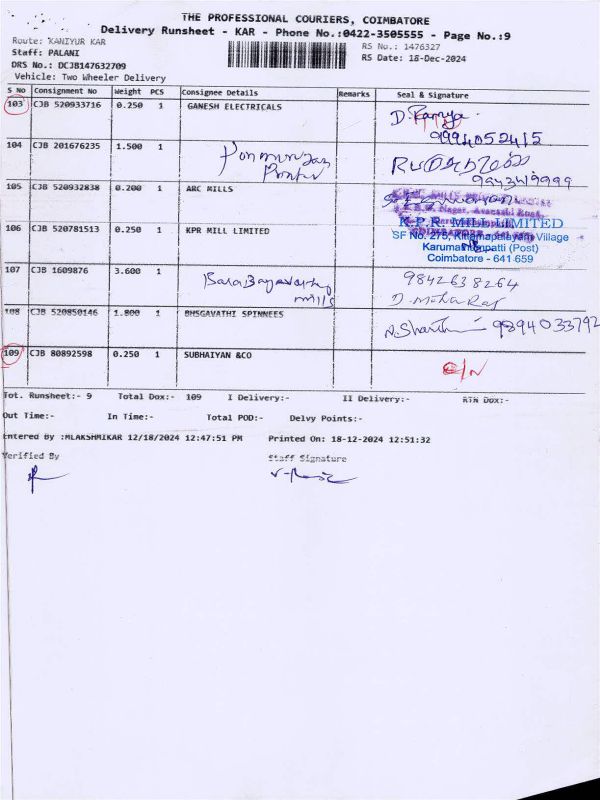 THE PROFESSIONAL COURIERS, COIMBATORE
Delivery Runsheet - KAR - Phone No.:0422-3505555 - Page No.:9
Route: KANIYUR KAR
RS No.: 1476327
Staff: PALANI
RS Date: 18-Dec-2024
DRS No.: DCJB147632709
Vehicle: Two Wheeler Delivery
S No Consignment No Weight PCS Consignee Details Remarks Seal & Signature
103 CJB 520933716 0.250 1 GANESH ELECTRICALS D. Ramya
9994052415
104 CJB 201676235 1.500 1
9943419999
105 CJB 520932838 0.200 1 ARC MILLS
106 CJB 520781513 0.250 1 KPR MILL LIMITED K.P.R. MILL LIMITED
SF No. 275, Kittampalayam Village
Karumathampatti (Post)
Coimbatore - 641 659
107 CJB 1609876 3.600 1 mills 9842638264
108 CJB 520850146 1.800 1 BHSGAVATHI SPINNEES 9894033792
109 CJB 80892598 0.250 1 SUBHAIYAN &CO
Tot. Runsheet:- 9 Total Dox:- 109 I Delivery:- II Delivery:- RTN DOX:-
Out Time:- In Time:- Total POD:- Delvy Points:-
Entered By :MLAKSHMIKAR 12/18/2024 12:47:51 PM Printed On: 18-12-2024 12:51:32
Verified By Staff Signature